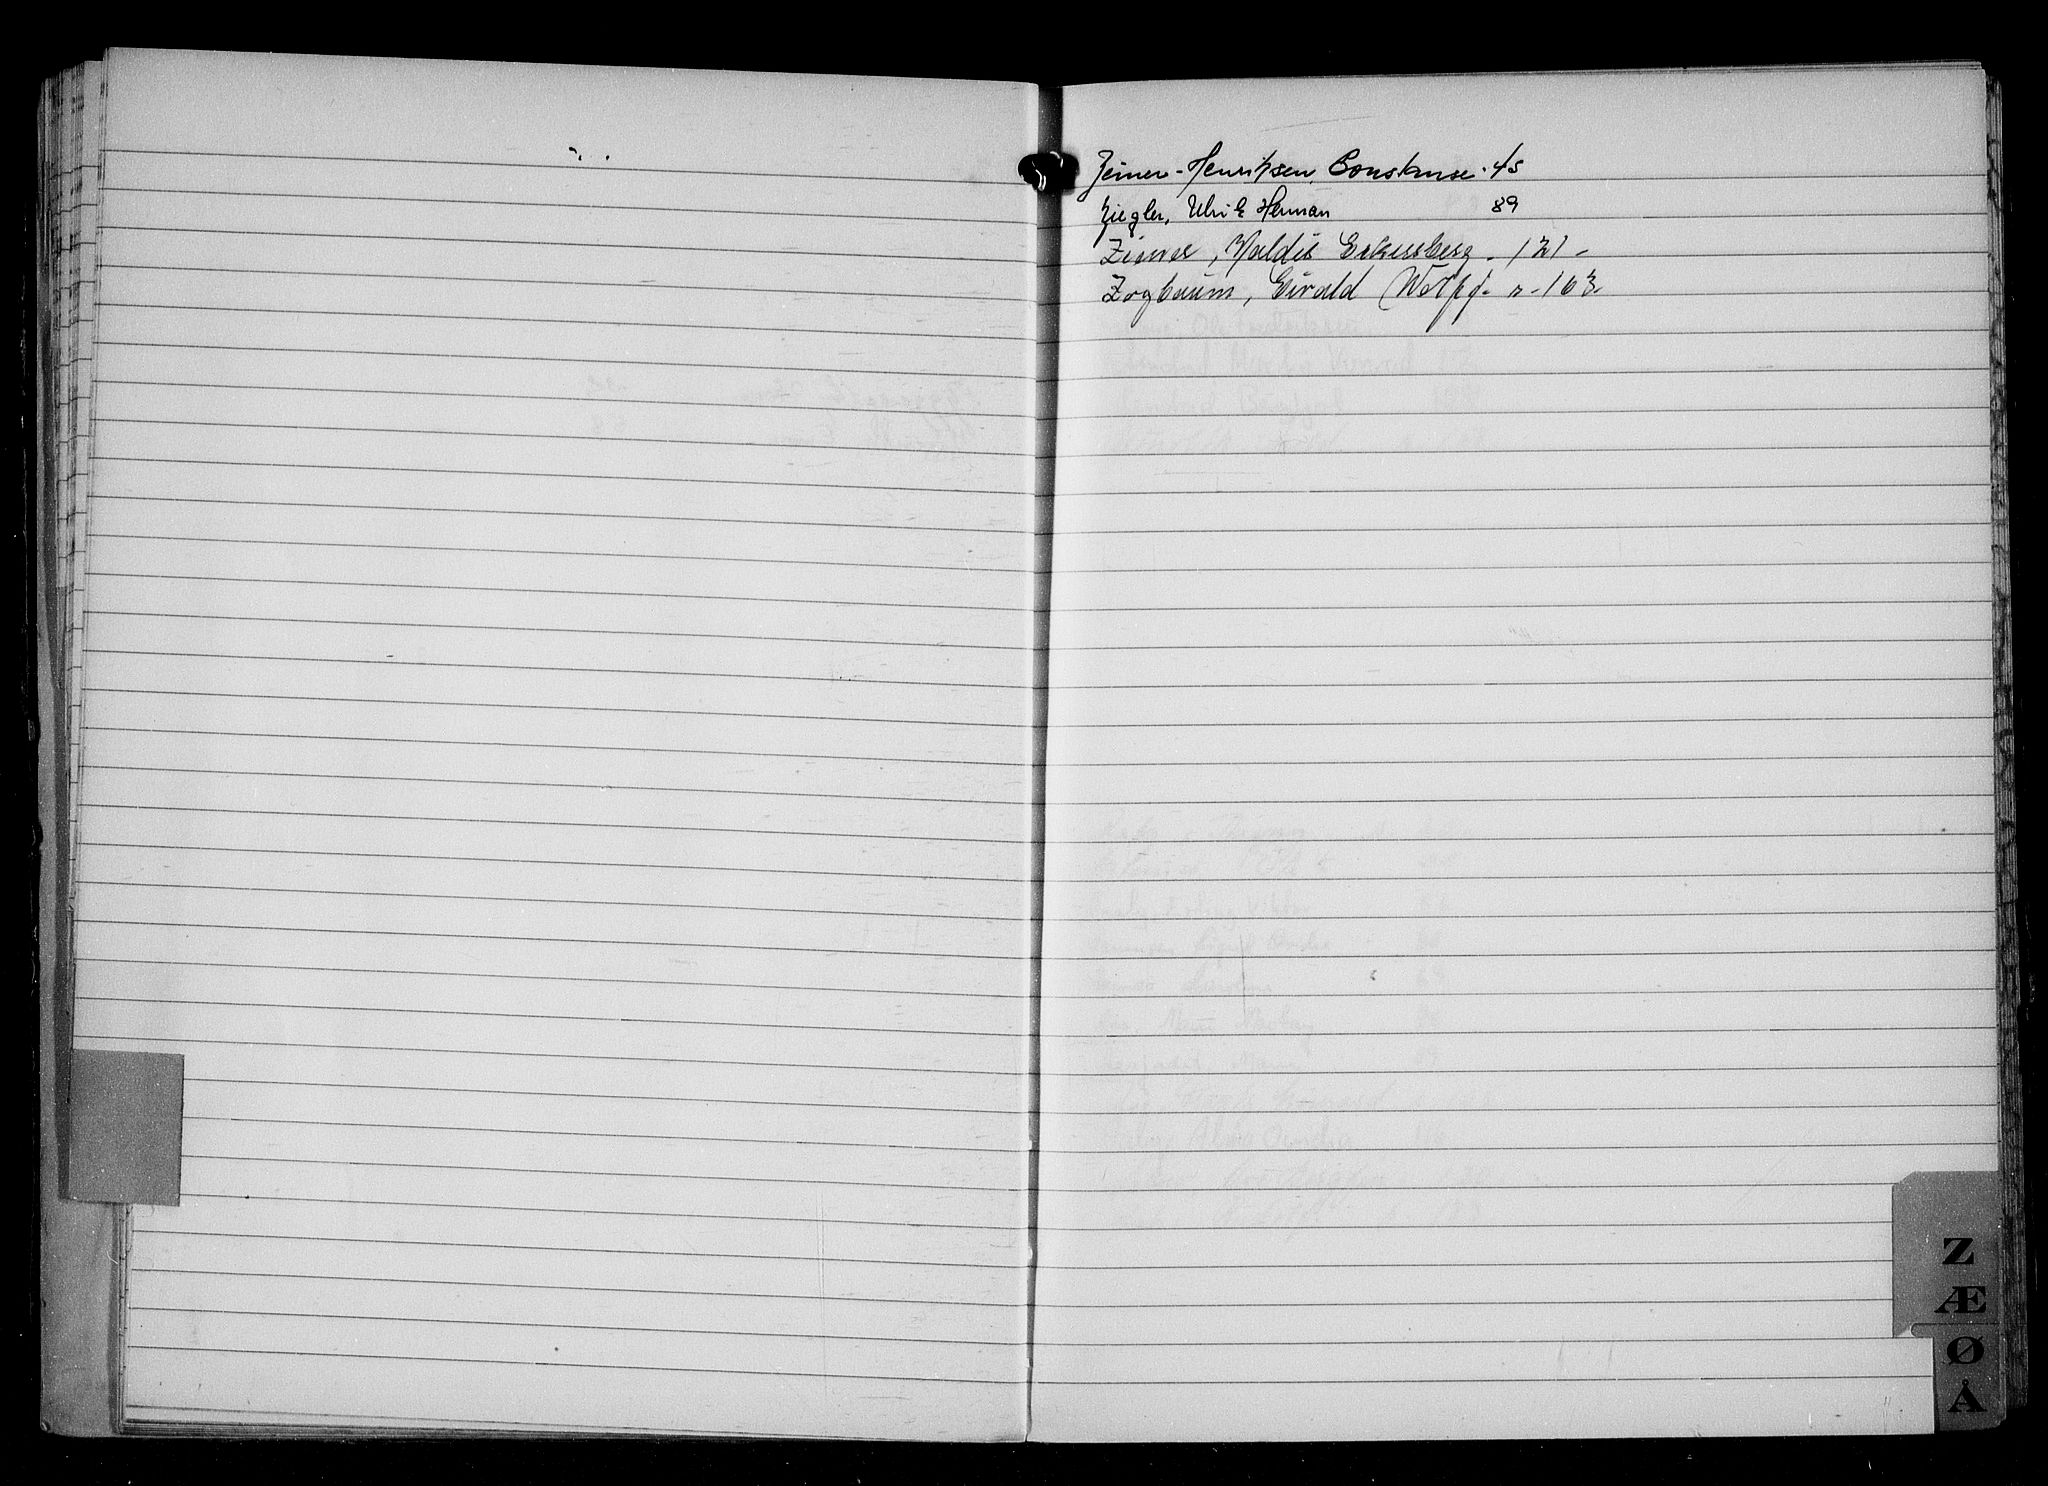 Zeiner-Henriksen, Constanse. 45
Ziegler, Ulrik Herman 89
Zimer, Valdis Eckersberg - 121 -
Zogbaum, Eivald 163.
Z
Æ
Ø
Å